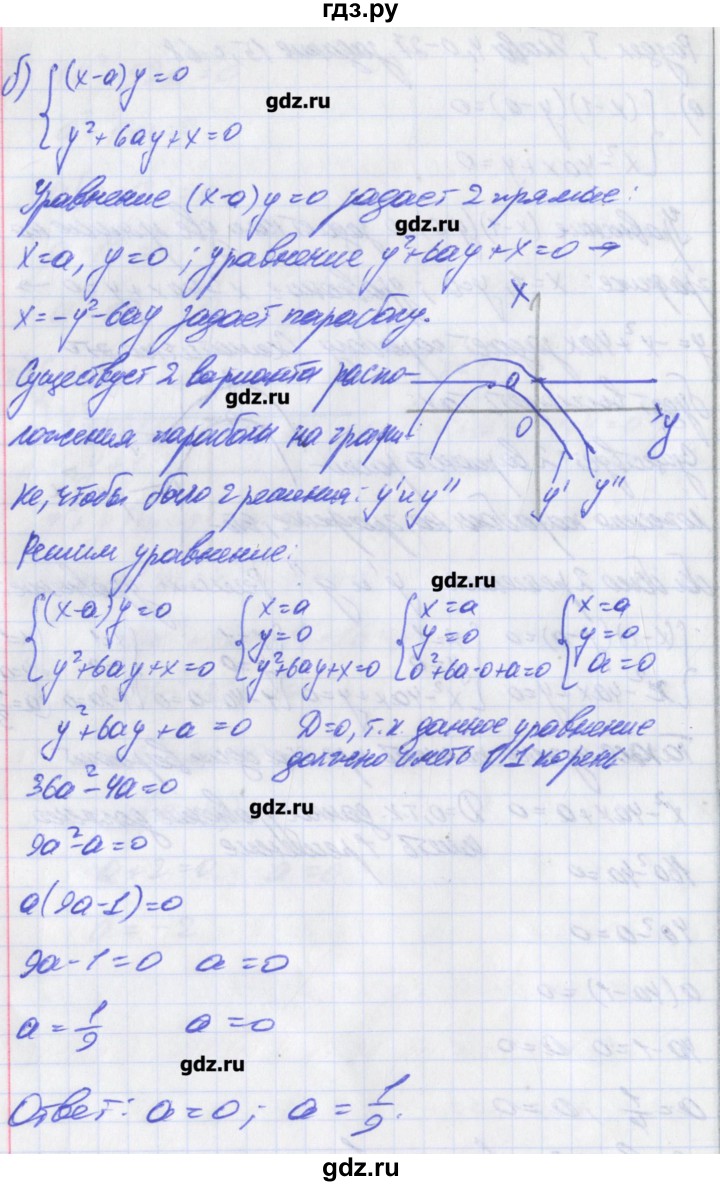 гдз.ру
б) {(x-a)y=0
gdz.ru
y²+6ay+x=0
Уравнение (x-a)y=0 задает 2 прямые:
gdz.ru
x=a, y=0; уравнение y²+6ay+x=0 →
x=-y²-6ay задает параболу.
x
Существует 2 варианта распо-
gdz.ru
a
y
ложения параболы на графи-
0
ке, чтобы было 2 решения: y' и y''
y' y''
Решим уравнение:
gdz.ru
{(x-a)y=0 {x=a {x=a {x=a
y=0 y=0 y=0
y²+6ay+x=0 y²+6ay+x=0 0²+6a·0+a=0 a=0
y²+6ay+a=0 D=0, т.к данное уравнение
должно иметь 1 корень
36a²-4a=0
gdz.ru
9a²-a=0
a(9a-1)=0
9a-1=0 a=0
a=1/9 a=0
gdz.ru
Ответ: a=0; a=1/9.
gdz.ru